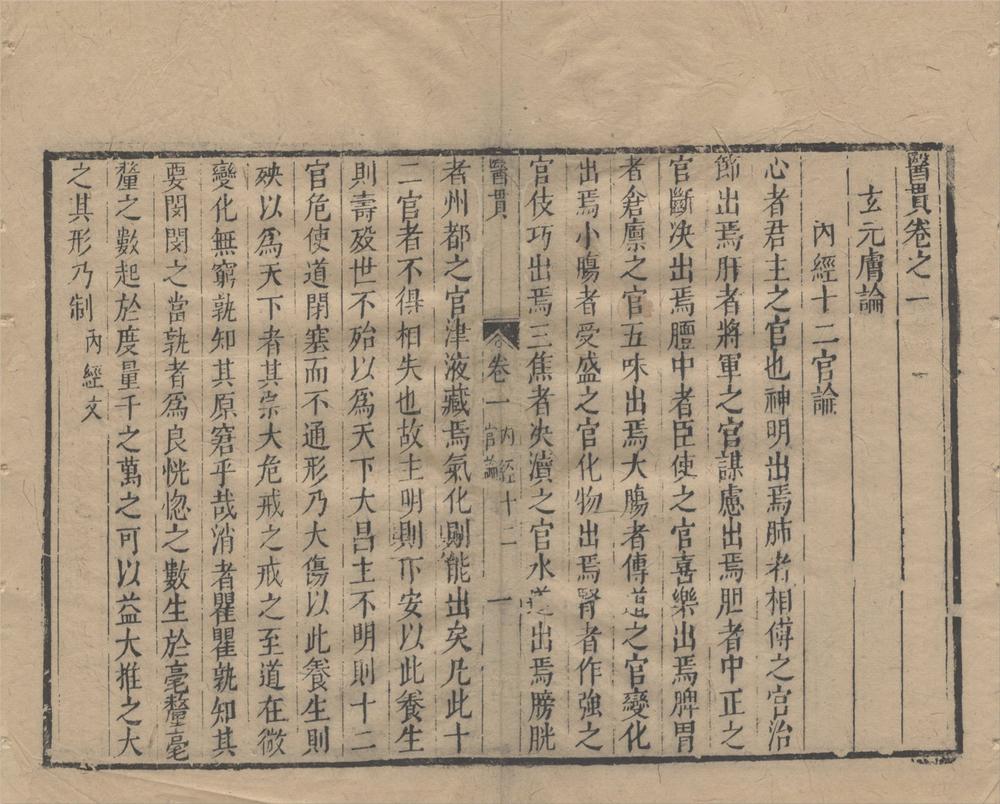 醫貫卷之一
玄元膚論
內經十二官論
心者君主之官也神明出焉肺者相傅之官治
節出焉肝者將軍之官謀慮出焉胆者中正之
官斷决出焉膻中者臣使之官喜樂出焉脾胃
者倉廪之官五味出焉大腸者傳道之官變化
出焉小腸者受盛之官化物出焉腎者作強之
官伎巧出焉三焦者决瀆之官水道出焉膀胱
醫貫
卷一
內經十二
官論
一
者州都之官津液藏焉氣化則能出矣凡此十
二官者不得相失也故主明則下安以此養生
則壽殁世不殆以爲天下大昌主不明則十二
官危使道閉塞而不通形乃大傷以此養生則
殃以爲天下者其宗大危戒之戒之至道在微
變化無窮孰知其原窘乎哉消者瞿瞿孰知其
要閔閔之當孰者爲良恍惚之數生於毫釐毫
釐之數起於度量千之萬之可以益大推之大
之其形乃制內經文